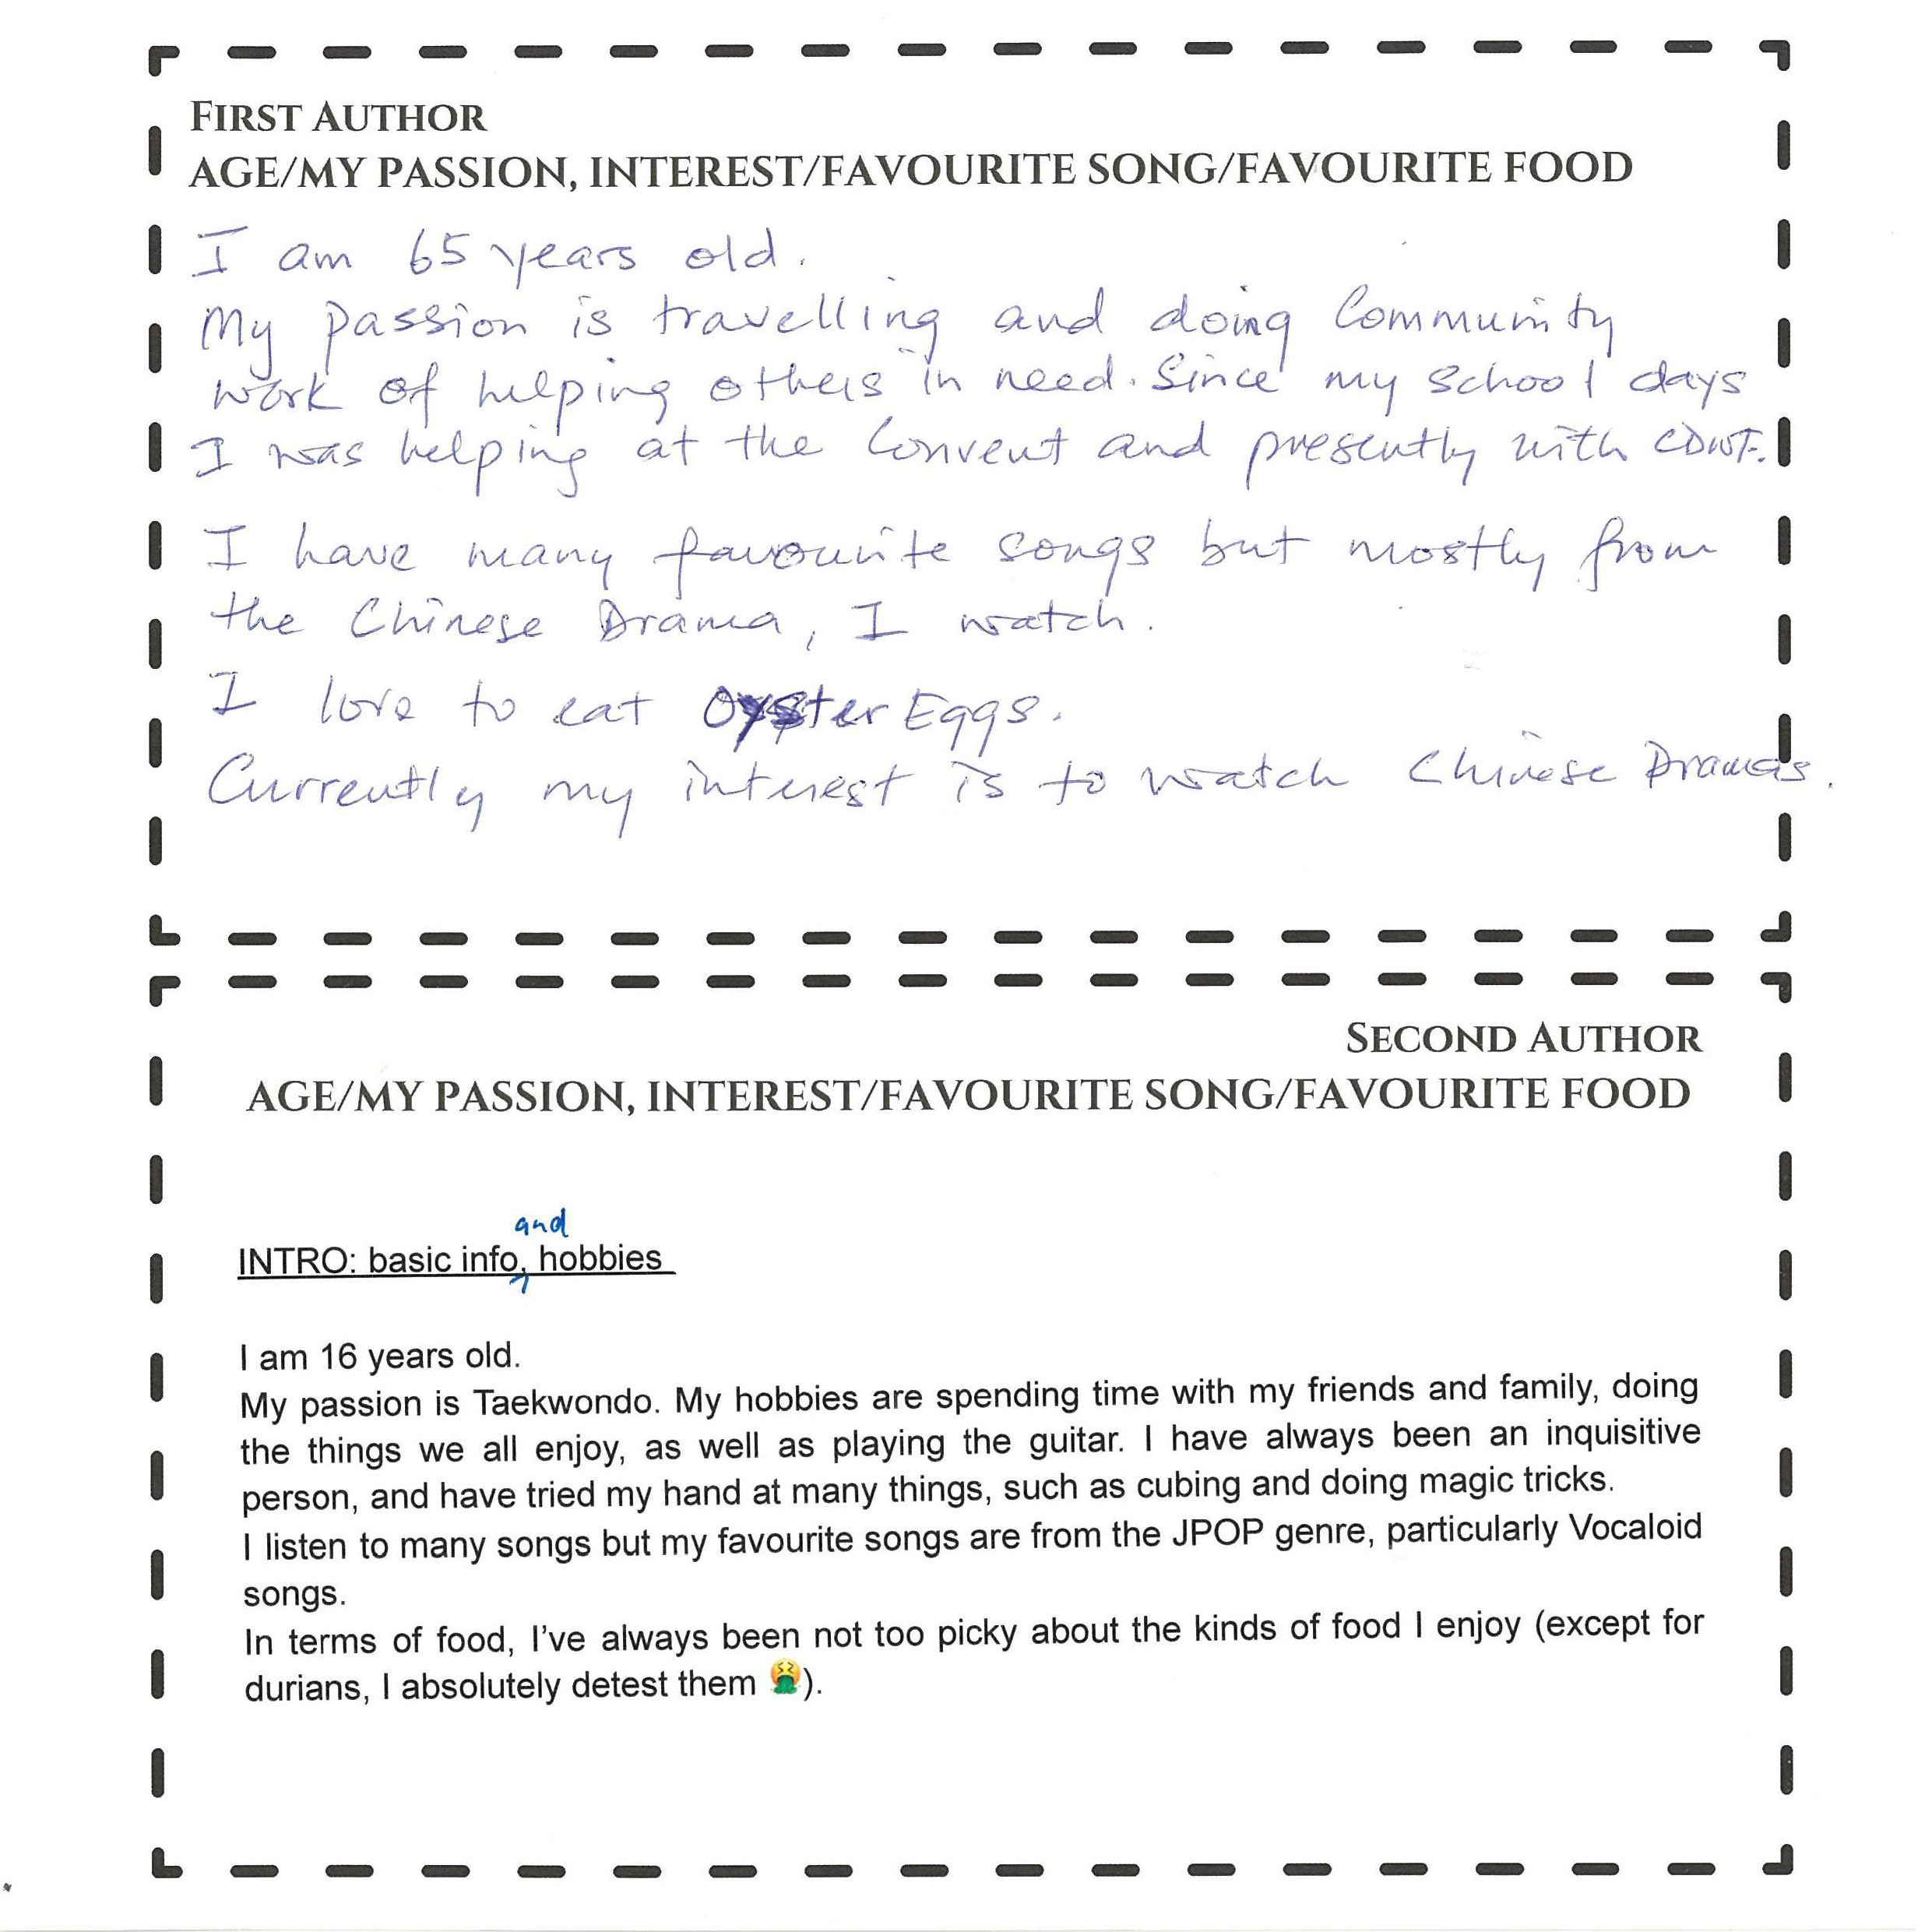 FIRST AUTHOR
AGE/MY PASSION, INTEREST/FAVOURITE SONG/FAVOURITE FOOD
I am 65 years old.
My passion is travelling and doing Community
work of helping others in need. Since my school days
I was helping at the Convent and presently with CDWF.
I have many favourite songs but mostly from
the Chinese Drama, I watch.
I love to eat Oyster Eggs.
Currently my interest is to watch Chinese Dramas.
SECOND AUTHOR
AGE/MY PASSION, INTEREST/FAVOURITE SONG/FAVOURITE FOOD
and
INTRO: basic info, hobbies
I am 16 years old.
My passion is Taekwondo. My hobbies are spending time with my friends and family, doing
the things we all enjoy, as well as playing the guitar. I have always been an inquisitive
person, and have tried my hand at many things, such as cubing and doing magic tricks.
I listen to many songs but my favourite songs are from the JPOP genre, particularly Vocaloid
songs.
In terms of food, I've always been not too picky about the kinds of food I enjoy (except for
durians, I absolutely detest them 🤮).